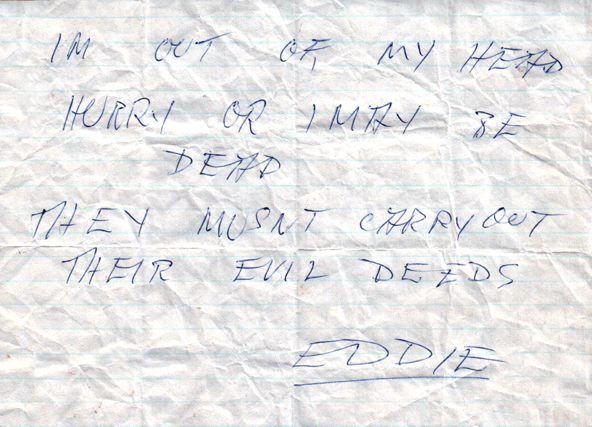 IM OUT OF, MY HEAD
HURRY OR I MAY BE
DEAD
THEY MUSNT CARRY OUT
THEIR EVIL DEEDS
EDDIE